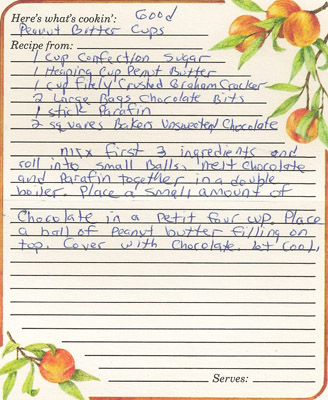 Here's what's cookin': Good
Peanut Butter Cups
Recipe from:
1 Cup Confection Sugar
1 Heaping Cup Penut Butter
1 Cup finely Crusted Graham Cracker
2 Large Bags Chocolate Bits
1 Stick Parafin
2 squares Bakers Unsweeted Chocolate
mix first 3 ingredients and
roll into small Balls. melt Chocolate
and Parafin together in a double
boiler. Place a small amount of
Chocolate in a petit four cup. Place
a ball of Peanut butter filling on
top. Cover with Chocolate. Let Cool.
Serves: